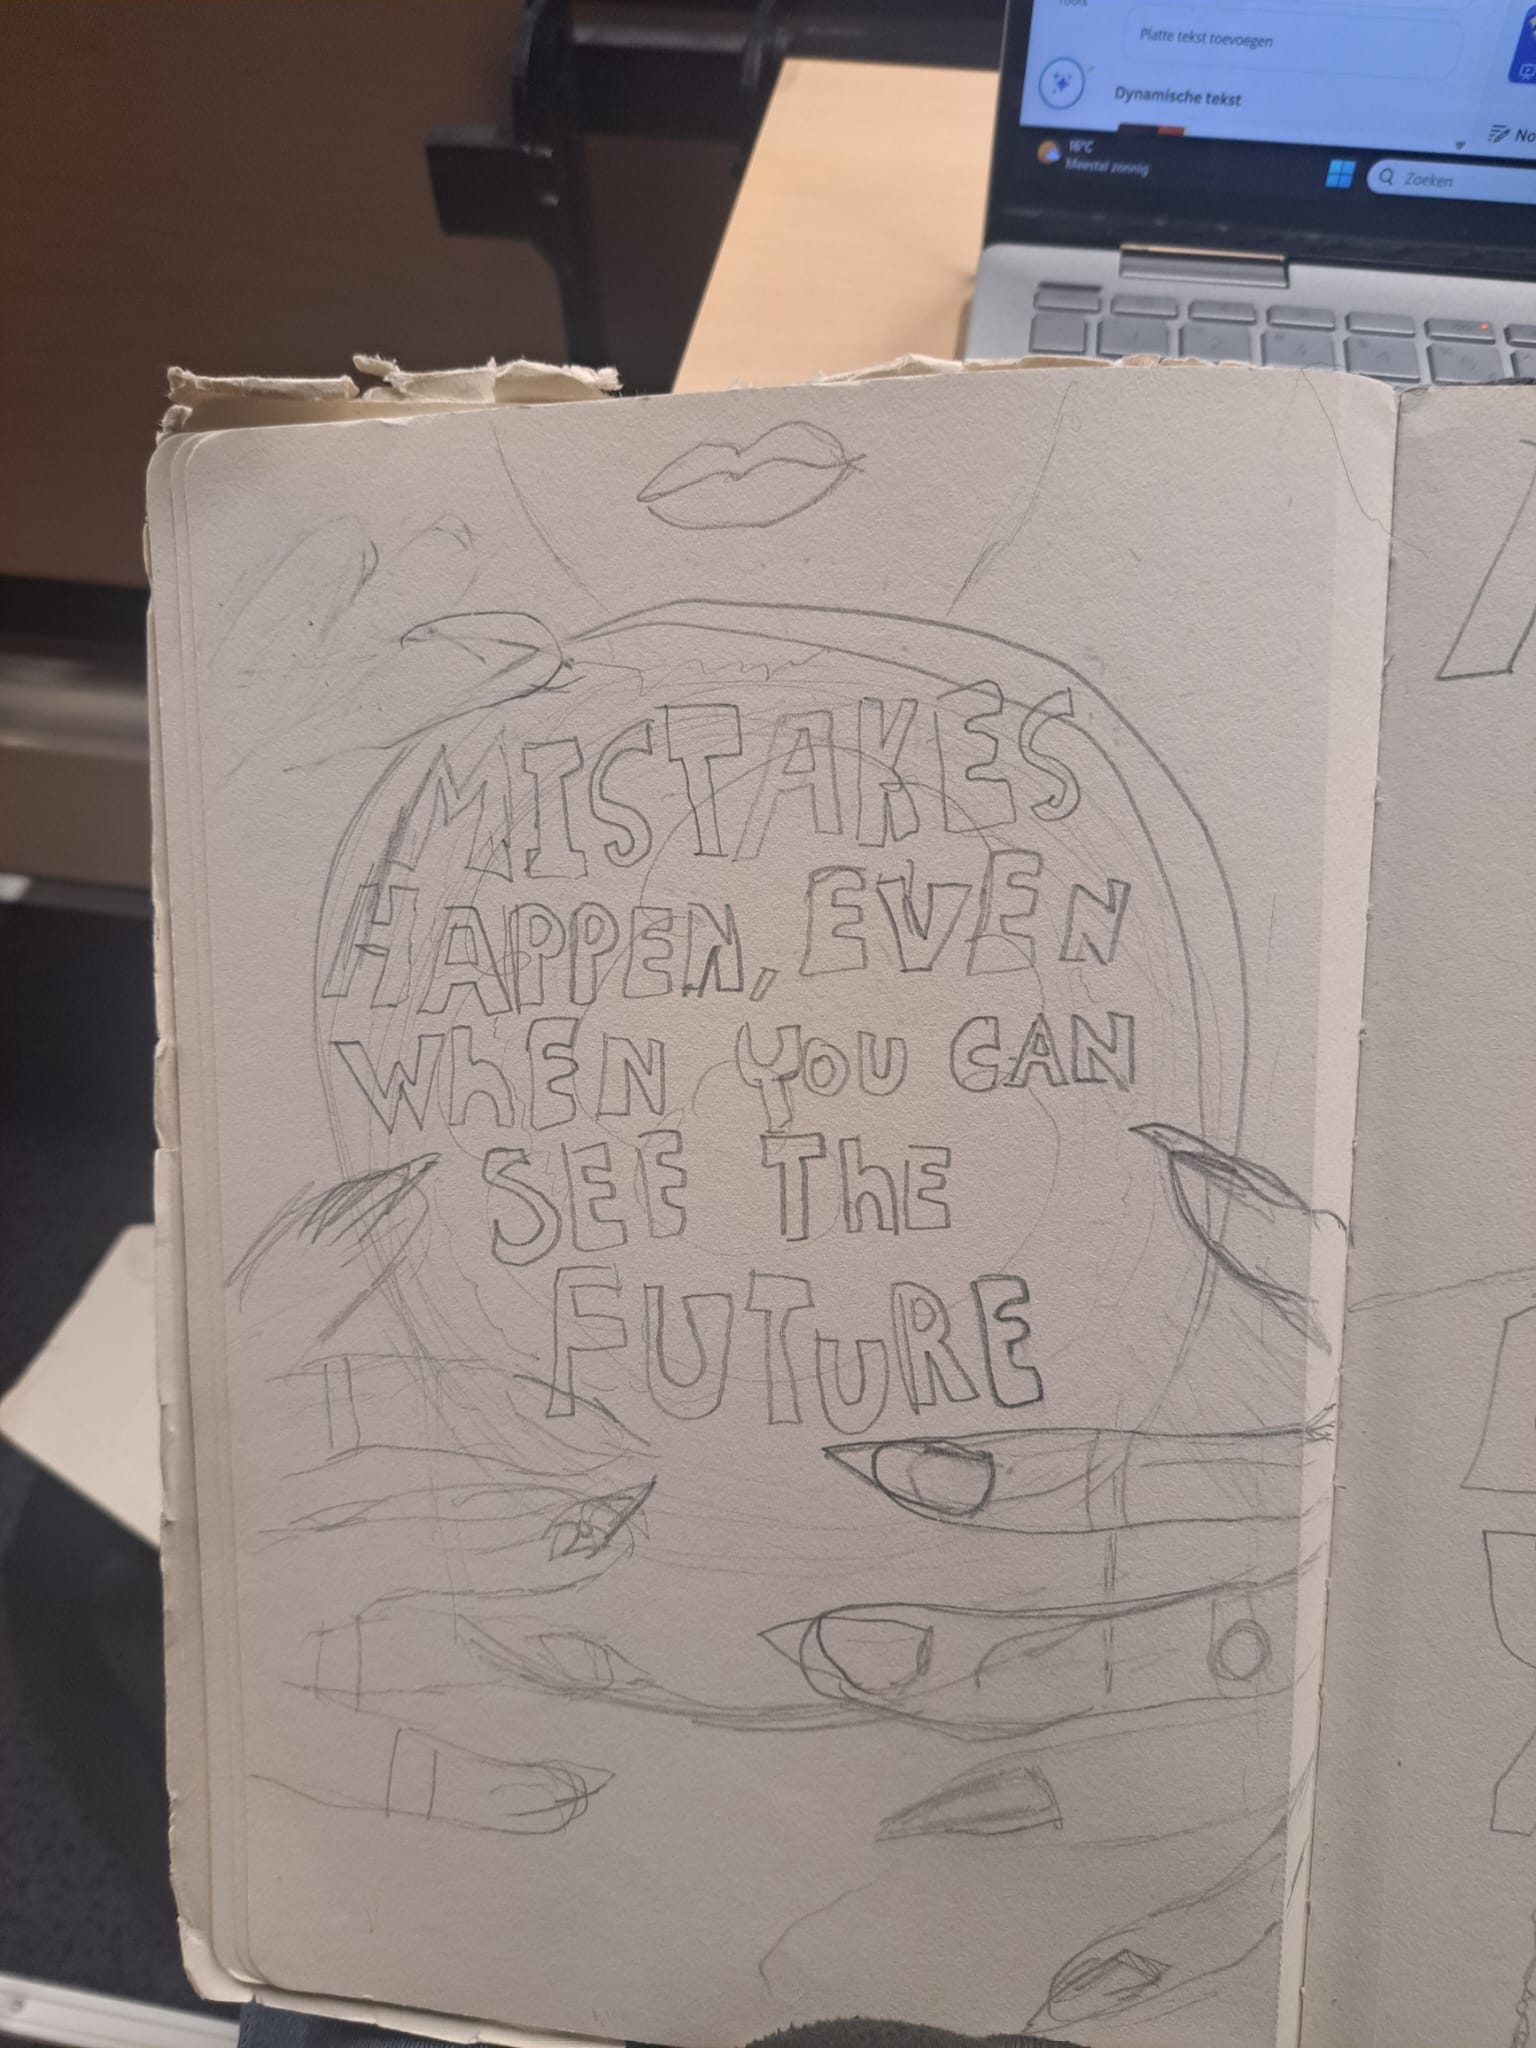 Tools
Platte tekst toevoegen
Dynamische tekst
16°C
Meestal zonnig
Zoeken
MISTAKES
HAPPEN, EVEN
WhEN YOU CAN
SEE ThE
FUTURE